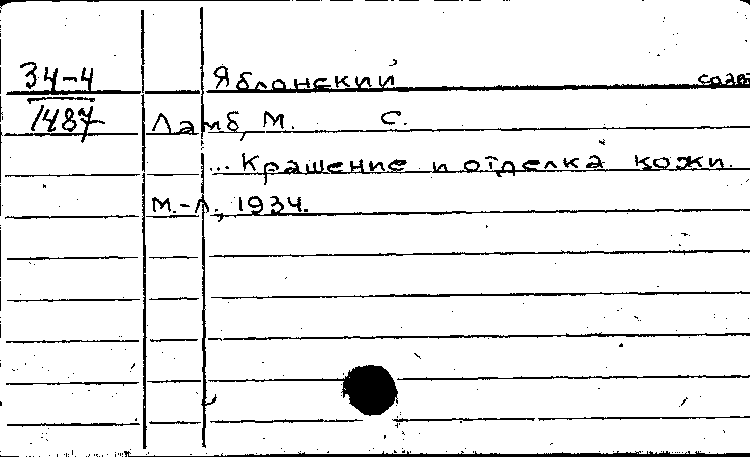 34-4 Яблонский соавт
1487 Ламб, М. С.
... Крашение и отделка кожи.
М.-Л., 1934.